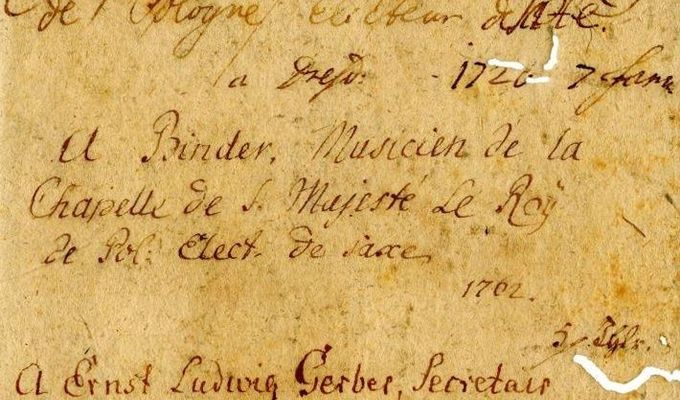 de Pologne, Electeur
a Dresd: - 1726 7 Janv.
A Binder, Musicien de la
Chapelle de S. Majesté Le Roÿ
de Pol: Elect. de saxe
1762.
5 Thlr.
A Ernst Ludwig Gerber, Secretair